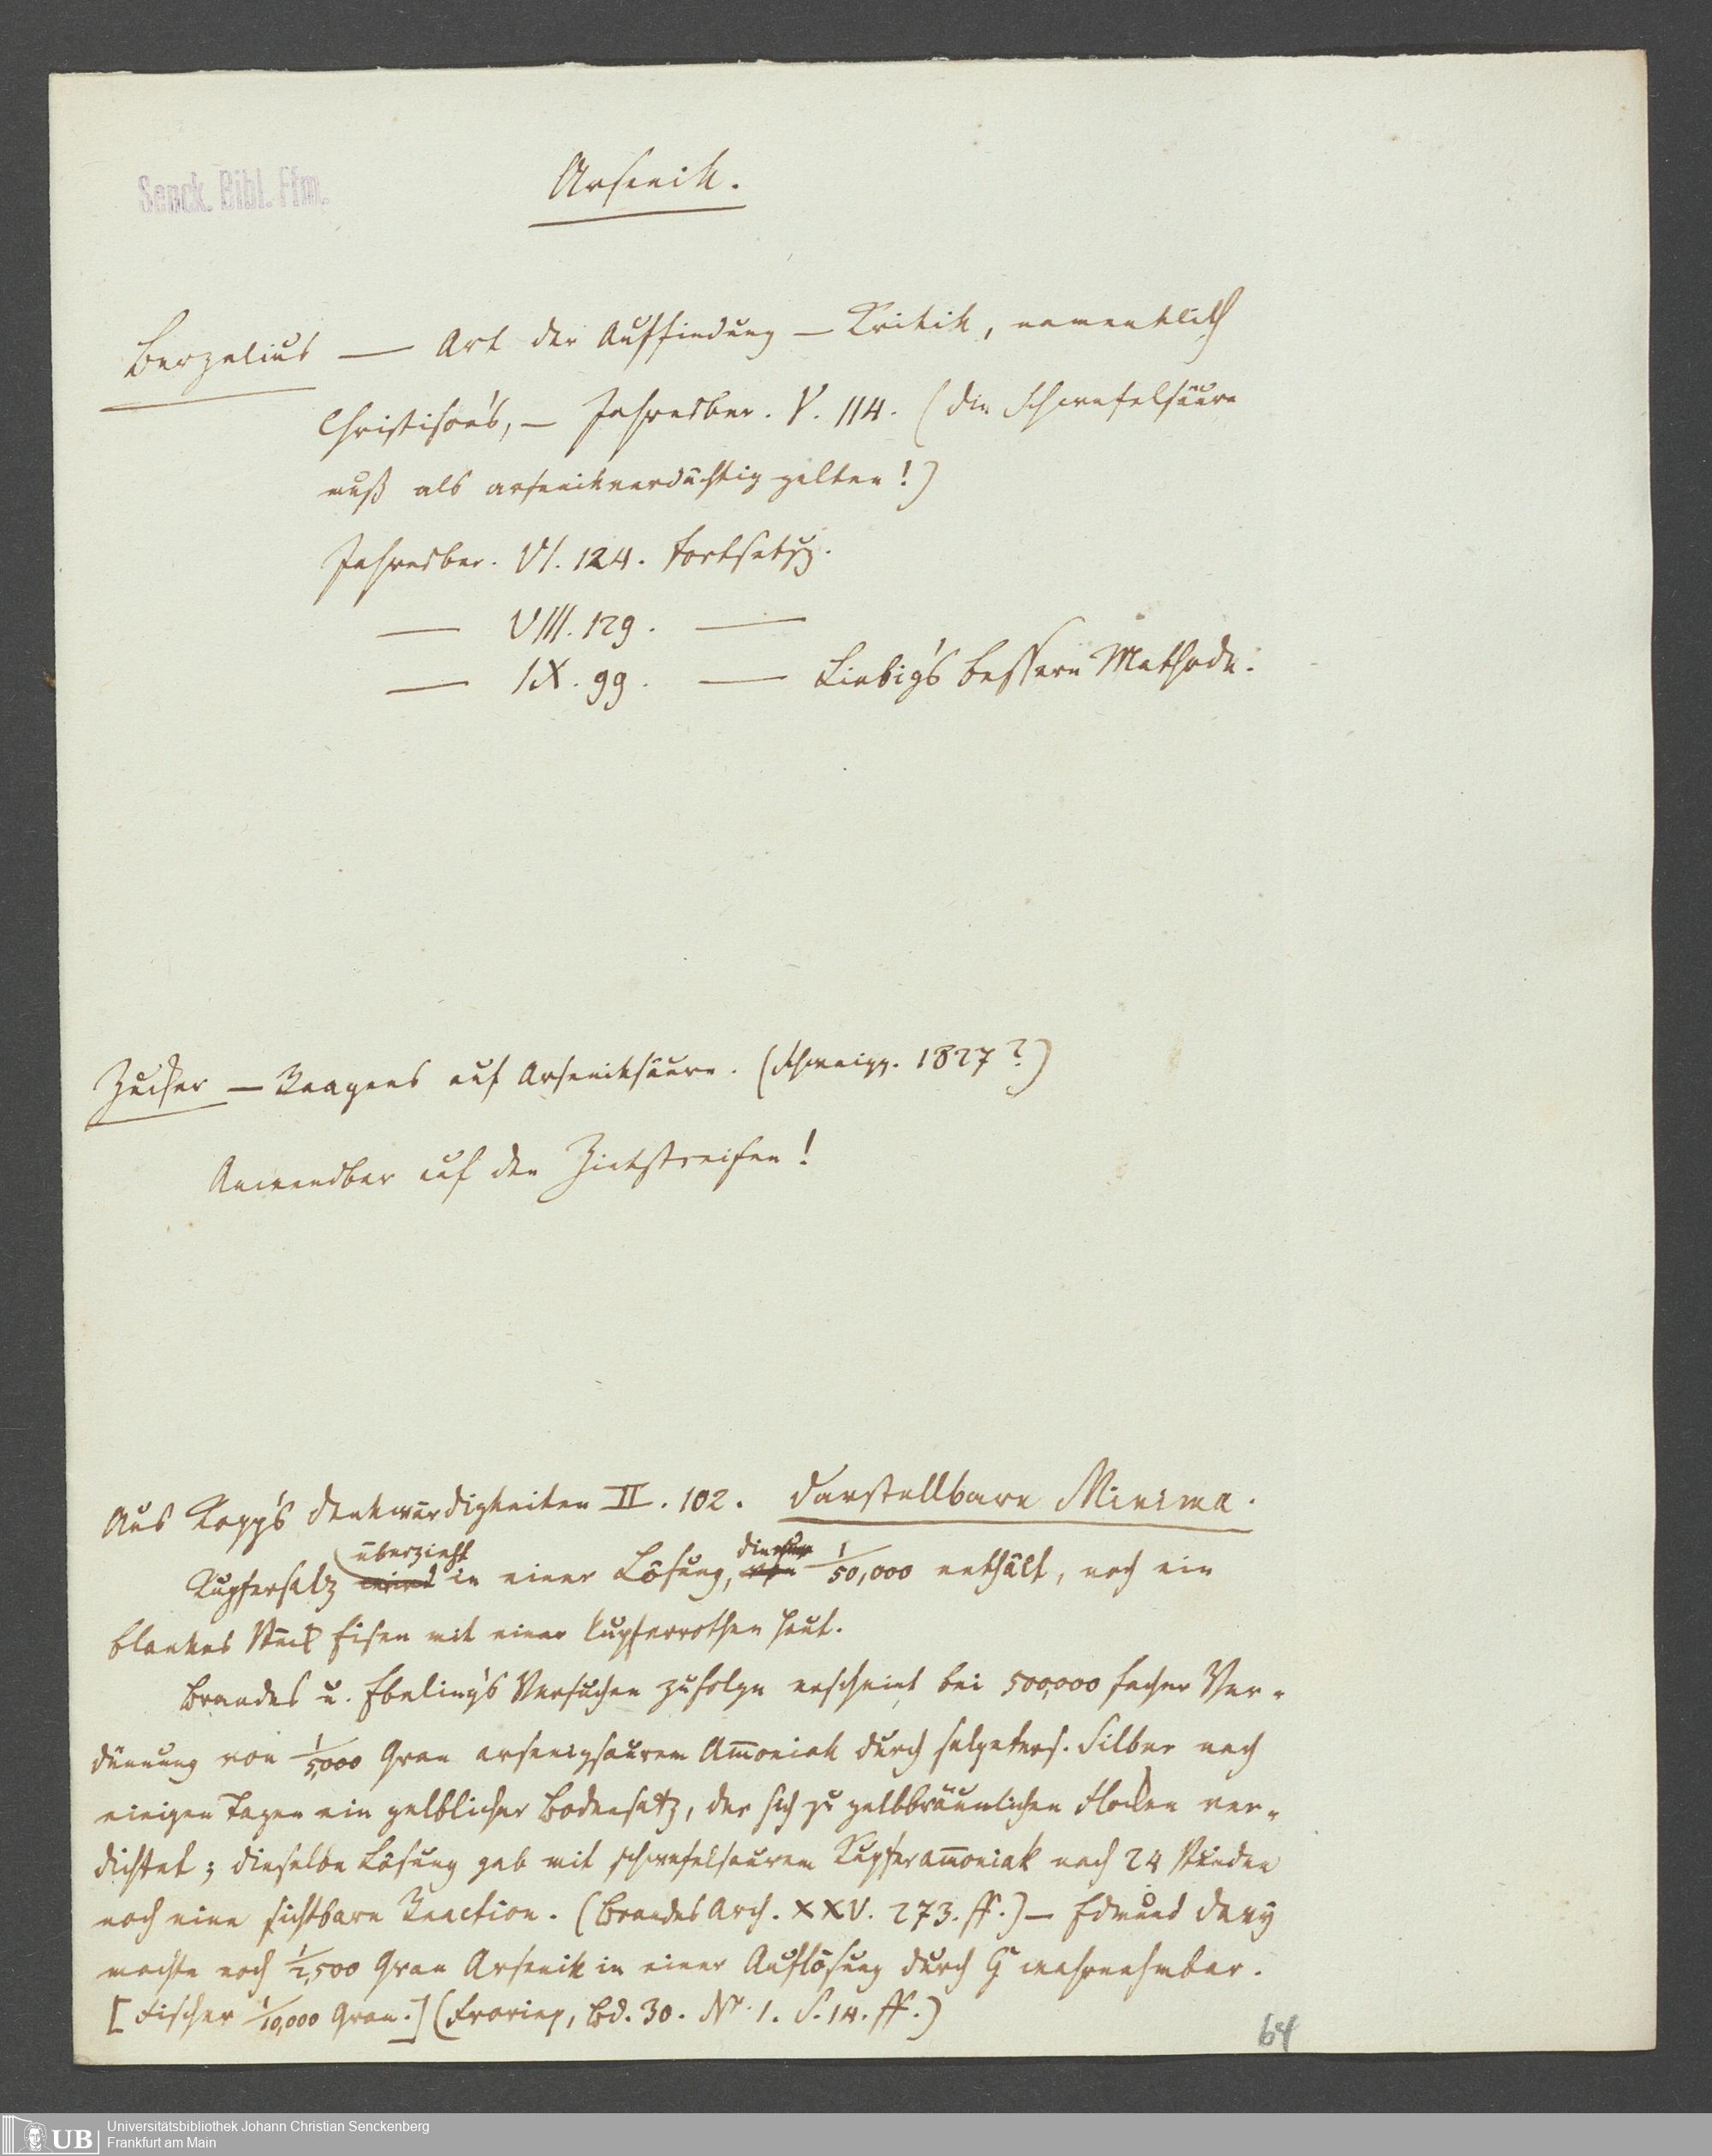 Senck. Bibl. Ffm.
Arsenik.
Berzelius — Art der Auffindung — Kritik, namentlich
Christison's, — Jahresber. V. 114. (die Schwefelsäure
muß als arsenikverdächtig gelten!)
Jahresber. VI. 124. Fortsetzg.
— VIII. 129. —
— IX. 99. — Liebig's bessere Methode.
Zucker — Reagens auf Arseniksäure. (Schweigg. 1827?)
Anwendbar auf den Zinkstreifen!
Aus Kopp's Denkwürdigkeiten II. 102. Darstellbare Minima.
überzieht
Kupfersalz wird in einer Lösung, die 1/50,000 enthält, noch ein
blankes Stück Eisen mit einer kupferrothen Haut.
Brandes u. Ebeling's Versuchen zufolge erscheint bei 500,000 facher Ver-
dünnung von 1/5,000 Gran arsenigsaurem Am̅oniak durch salpeters. Silber nach
einigen Tagen ein gelblicher Bodensatz, der sich zu gelbbräunlichen Flocken ver-
dichtet; dieselbe Lösung gab mit schwefelsaurem Kupferam̅oniak nach 24 Stunden
noch eine sichtbare Reaction. (Brandes Arch. XXV. 273. ff.) — Edmund Davy
machte noch 1/2,500 Gran Arsenik in einer Auflösung durch wahrnehmbar.
[Fischer 1/10,000 Gran.] (Froriep, Bd. 30. Nr. 1. S. 14. ff.)
64
UB
Universitätsbibliothek Johann Christian Senckenberg
Frankfurt am Main